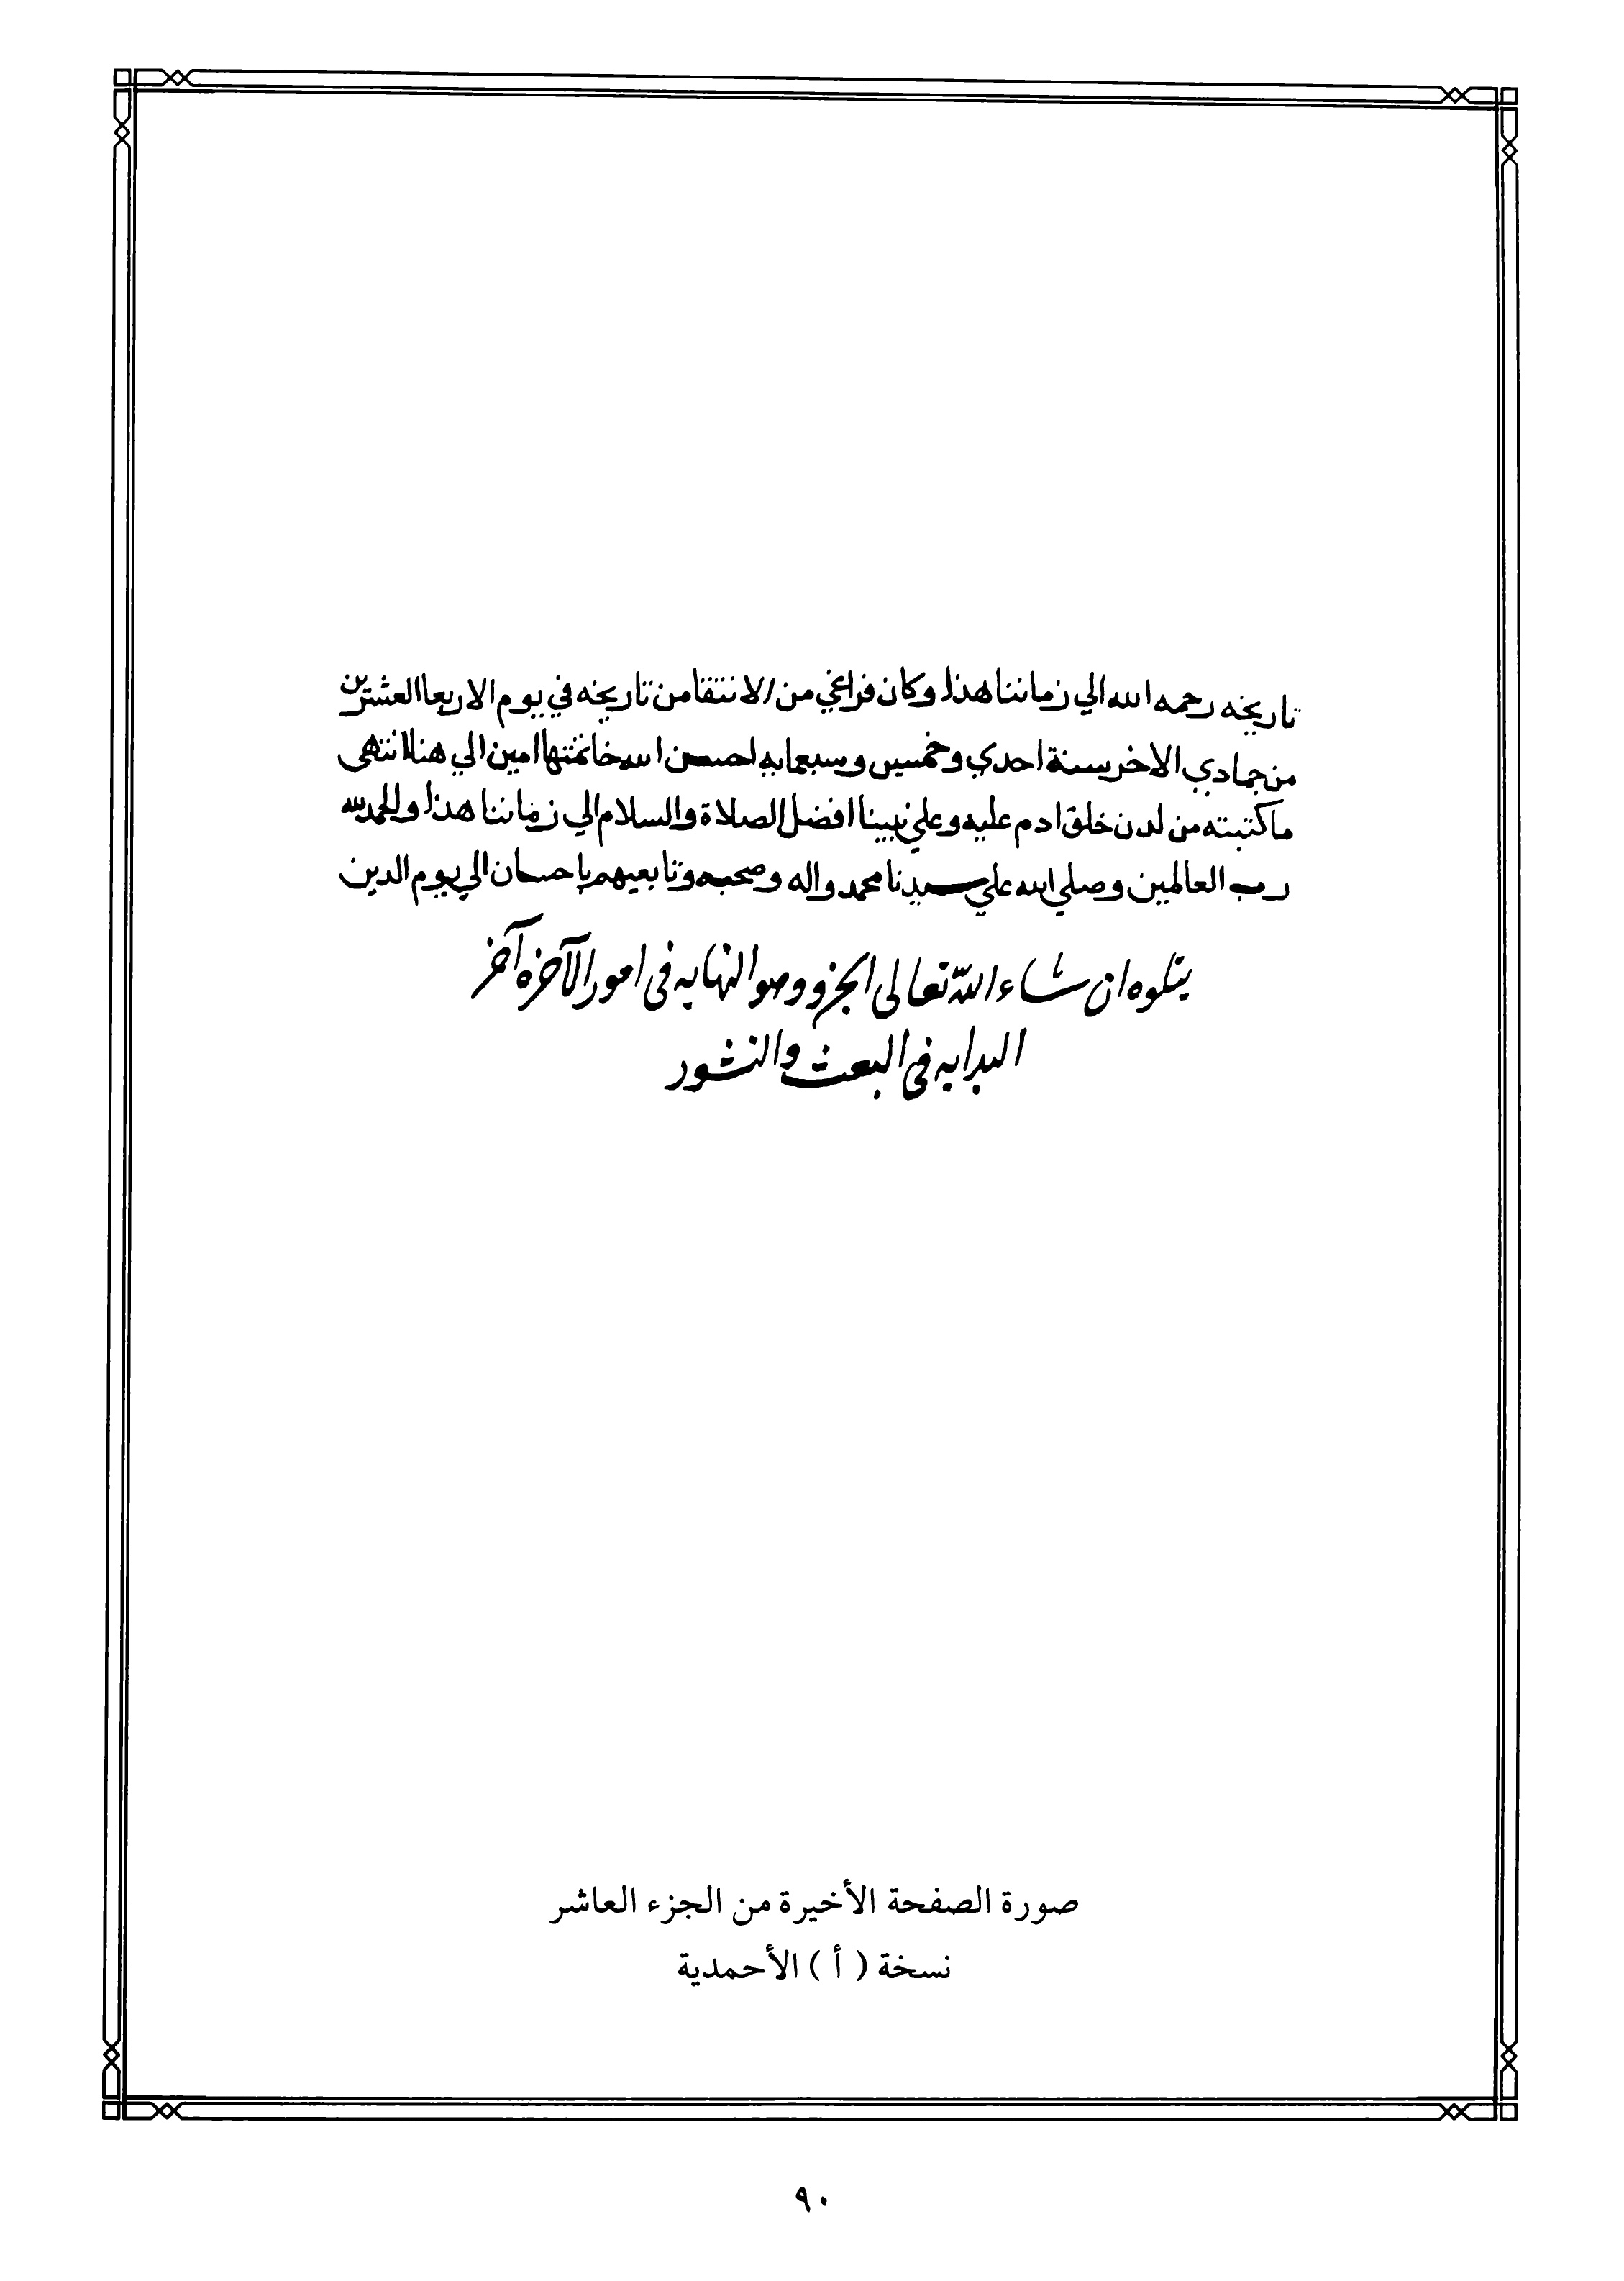 تاريخه رحمه الله الي زماننا هذا وكان فراغي من الانتقا من تاريخه في يوم الاربعا العشرين
من جمادي الاخر سنة احدي وخمسين وسبعمايه احسن الله خاتمتها امين الي هنا انتهى
ما كتبته من لدن خلق ادم عليه وعلي نبينا افضل الصلاة والسلام الي زماننا هذا والحمد لله
رب العالمين وصلي الله علي سيدنا محمد واله وصحبه وتابعيهم باحسان الي يوم الدين
يتلوه ان شاء الله تعالى الجزو وهو النهايه فى امور الآخره آخر
البدايه فى البعث والنشور
صورة الصفحة الأخيرة من الجزء العاشر
نسخة ( أ ) الأحمدية
٩٠